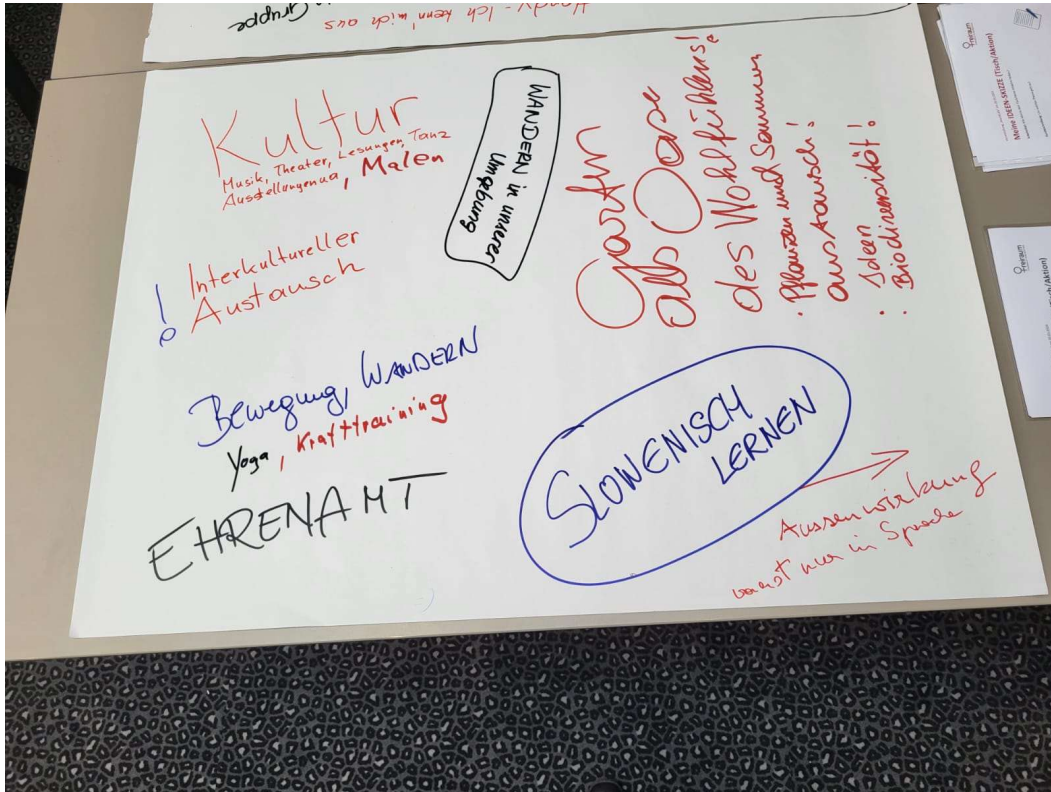 Handy - Ich kenn' mich aus
Gruppe
Kultur
Musik, Theater, Lesungen, Tanz
Ausstellungen, Malen
Interkultureller
! Austausch
Bewegung, WANDERN
Yoga, Krafttraining
EHRENAMT
WANDERN in unserer
Umgebung
Garten
als Oase
des Wohlfühlens!
· Pflanzen und Samen
austausch!
· Ideen
· Biodiversität!
SLOWENISCH
LERNEN
Aussenwirkung
nur in Sprache
freiraum
Meine IDEEN-SKIZZE (Tisch/Aktion)
freiraum
(Tisch/Aktion)